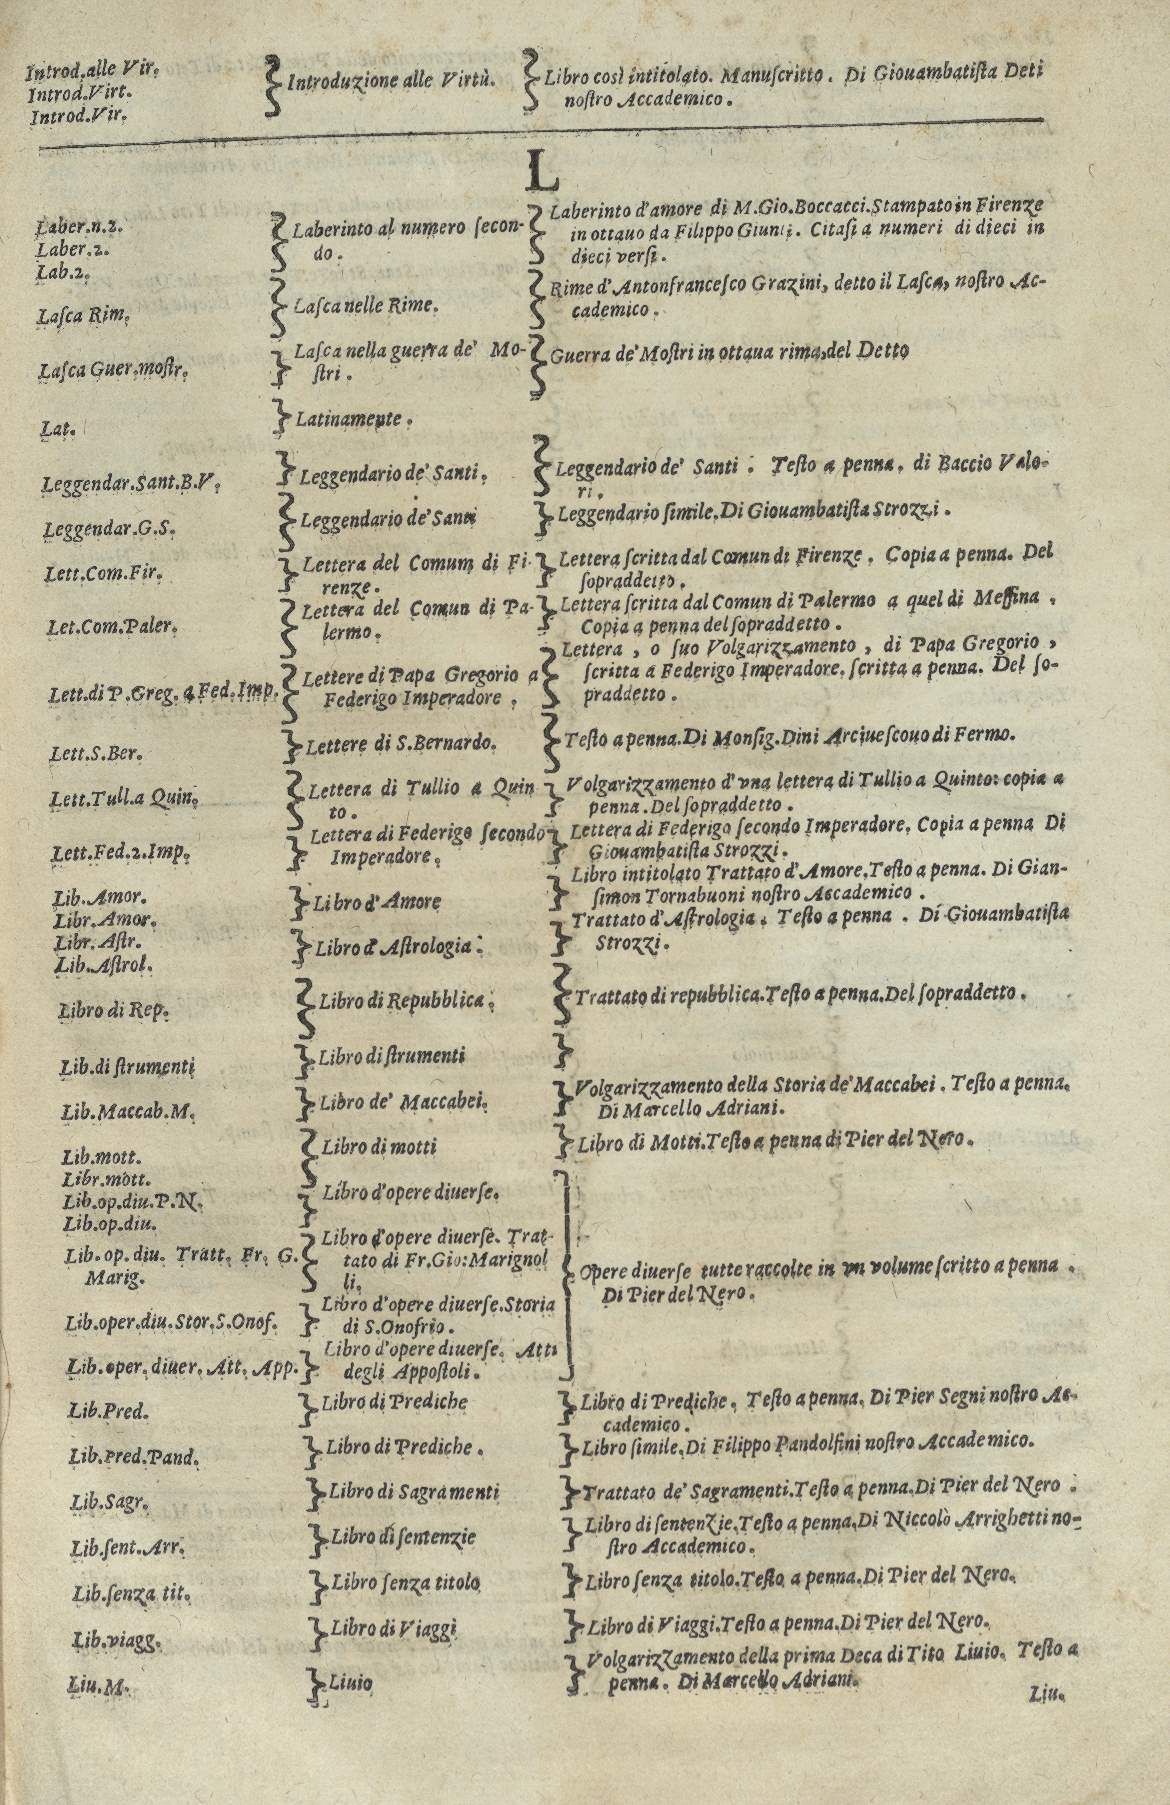 Introd.alle Vir.
Introd.Virt.
Introd.Vir.
Introduzione alle Virtù.
Libro così intitolato. Manuſcritto. Di Giouambatiſta Deti
noſtro Accademico.
L
Laber.n.2.
Laber.2.
Lab.2.
Laberinto al numero ſecon-
do.
Laberinto d'amore di M.Gio.Boccacci.Stampato in Firenze
in ottauo da Filippo Giunti. Citaſi a numeri di dieci in
dieci verſi.
Laſca Rim.
Laſca nelle Rime.
Rime d'Antonfranceſco Grazini, detto il Laſca, noſtro Ac-
cademico.
Laſca Guer.moſtr.
Laſca nella guerra de' Mo-
ſtri.
Guerra de' Moſtri in ottaua rima,del Detto
Lat.
Latinamente.
Leggendar.Sant.B.V.
Leggendario de' Santi.
Leggendario de' Santi. Teſto a penna. di Baccio Valo-
ri.
Leggendar.G.S.
Leggendario de' Santi
Leggendario ſimile.Di Giouambatiſta Strozzi.
Lett.Com.Fir.
Lettera del Comum di Fi-
renze.
Lettera ſcritta dal Comun di Firenze. Copia a penna. Del
ſopraddetto.
Let.Com.Paler.
Lettera del Comun di Pa-
lermo.
Lettera ſcritta dal Comun di Palermo a quel di Meſſina.
Copia a penna del ſopraddetto.
Lett.di P.Greg. a Fed.Imp.
Lettere di Papa Gregorio a
Federigo Imperadore.
Lettera, o ſuo Volgarizzamento, di Papa Gregorio,
ſcritta a Federigo Imperadore. ſcritta a penna. Del ſo-
praddetto.
Lett.S.Ber.
Lettere di S.Bernardo.
Teſto a penna.Di Monſig.Dini Arciueſcouo di Fermo.
Lett.Tull.a Quin.
Lettera di Tullio a Quin
to.
Volgarizzamento d'vna lettera di Tullio a Quinto: copia a
penna.Del ſopraddetto.
Lett.Fed.2.Imp.
Lettera di Federigo ſecondo
Imperadore.
Lettera di Federigo ſecondo Imperadore. Copia a penna Di
Giouambatiſta Strozzi.
Lib.Amor.
Libr.Amor.
Libro d'Amore
Libro intitolato Trattato d'Amore.Teſto a penna. Di Gian-
ſimon Tornabuoni noſtro Accademico.
Libr.Aſtr.
Lib.Aſtrol.
Libro d'Aſtrologia.
Trattato d'Aſtrologia. Teſto a penna. Di Giouambatiſta
Strozzi.
Libro di Rep.
Libro di Repubblica.
Trattato di repubblica.Teſto a penna.Del ſopraddetto.
Lib.di ſtrumenti
Libro di ſtrumenti
Lib.Maccab.M.
Libro de' Maccabei.
Volgarizzamento della Storia de' Maccabei. Teſto a penna.
Di Marcello Adriani.
Lib.mott.
Libr.mott.
Libro di motti
Libro di Motti.Teſto a penna di Pier del Nero.
Lib.op.diu.P.N.
Lib.op.diu.
Libro d'opere diuerſe.
Lib.op.diu. Tratt. Fr. G.
Marig.
Libro d'opere diuerſe. Trat-
tato di Fr.Gio:Marignol
li.
Opere diuerſe tutte raccolte in vn volume ſcritto a penna.
Di Pier del Nero.
Lib.oper.diu.Stor.S.Onof.
Libro d'opere diuerſe.Storia
di S.Onofrio.
Lib.oper.diuer. Att. App.
Libro d'opere diuerſe. Atti
degli Appoſtoli.
Lib.Pred.
Libro di Prediche
Libro di Prediche. Teſto a penna. Di Pier Segni noſtro Ac-
cademico.
Lib.Pred.Pand.
Libro di Prediche.
Libro ſimile.Di Filippo Pandolfini noſtro Accademico.
Lib.Sagr.
Libro di Sagramenti
Trattato de' Sagramenti.Teſto a penna.Di Pier del Nero.
Lib.ſent.Arr.
Libro di ſentenzie
Libro di ſentenzie.Teſto a penna.Di Niccolò Arrighetti no-
ſtro Accademico.
Lib.ſenza tit.
Libro ſenza titolo
Libro ſenza titolo.Teſto a penna.Di Pier del Nero.
Lib.viagg.
Libro di Viaggi
Libro di Viaggi.Teſto a penna.Di Pier del Nero.
Liu.M.
Liuio
Volgarizzamento della prima Deca di Tito Liuio. Teſto a
penna. Di Marcello Adriani.
Liu.